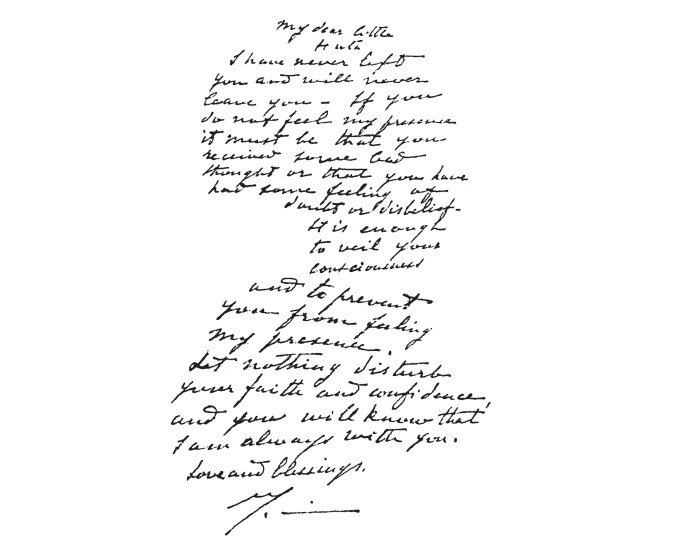 My dear little
Huta
I have never left
you and will never
leave you – If you
do not feel my presence
it must be that you
received some bad
thought or that you have
had some feeling of
doubt or disbelief–
It is enough
to veil your
consciousness
and to prevent
you from feeling
my presence.
Let nothing disturb
your faith and confidence,
and you will know that
I am always with you.
Love and blessings.